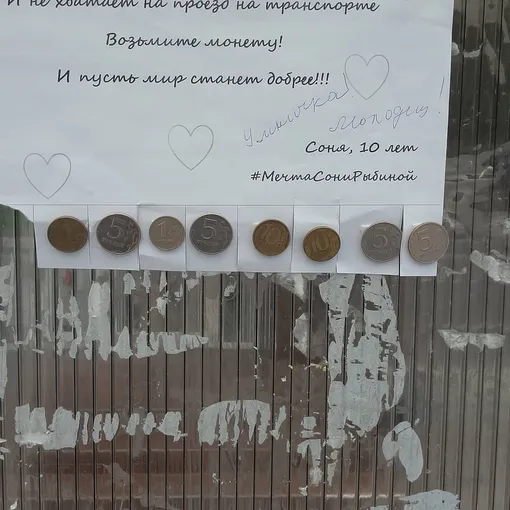 И не хватает на проезд на транспорте
Возьмите монету!
И пусть мир станет добрее!!!
Умничка!
Молодец!
Соня, 10 лет
#МечтаСониРыбиной
5
1
5
10
10
5
5